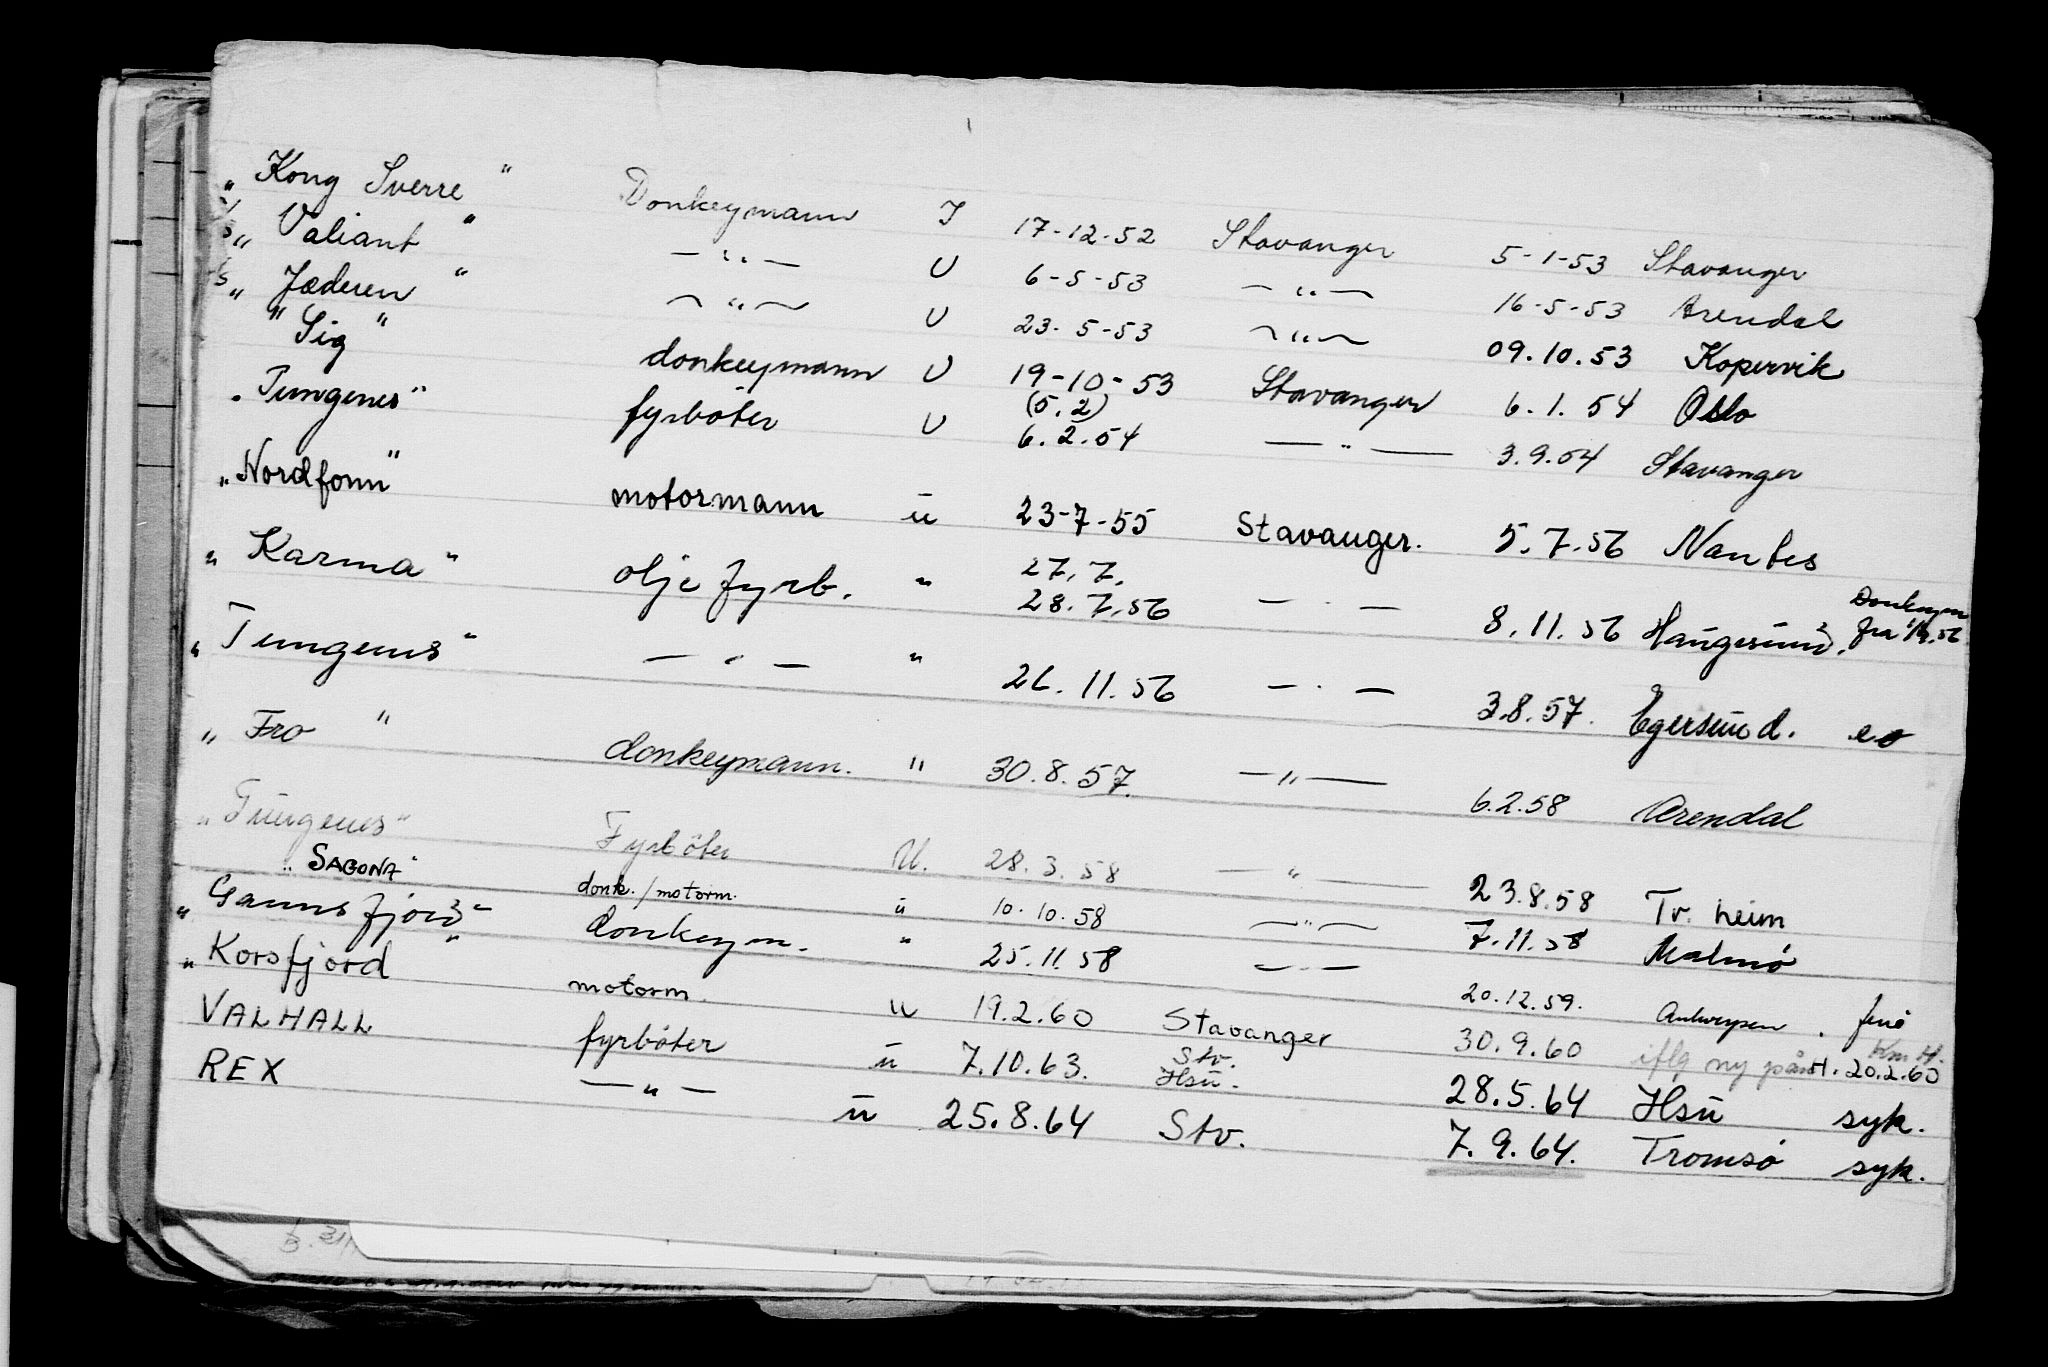 „ Kong Sverre " Donkeymann I 17-12-52 Stavanger 5-1-53 Stavanger
„ Valiant " — " — U 6-5-53 — " — 16-5-53 Arendal
„ Jæderen " — " — U 23-5-53 — " — 09.10.53 Kopervik
" Sig " donkeymann U 19-10-53 Stavanger 6.1.54 Oslo
„ Tungenes " fyrböter U (5.2) 6.2.54 — " — 3.9.54 Stavanger
„ Nordfonn " motormann u 23-7-55 Stavanger. 5.7.56 Nantes
„ Karma " olje fyrb. " 27.7. 28.7.56 — " — 8.11.56 Haugesund. Donkeym fra
„ Tungenes " — " — " 26.11.56 — " — 3.8.57. Egersund. eo
„ Fro " donkeymann. " 30.8.57. — " — 6.2.58 Arendal
„ Tungenes " Fyrböter U. 28.3.58 — " — 23.8.58 Tr. heim
" SAGONA " donk./motorm. u 10.10.58 — " — 7.11.58 Malmø
„ Gannsfjord " donkeym. " 25.11.58 — " — 20.12.59. Antwerpen. ferie
„ Korsfjord " motorm. u 19.2.60 Stavanger 30.9.60 iflg ny påm. Km H. 20.2.60
VALHALL fyrböter u 7.10.63. Stv. Hsu. 28.5.64 Hsu syk.
REX — " — u 25.8.64 Stv. 7.9.64. Tromsø syk.